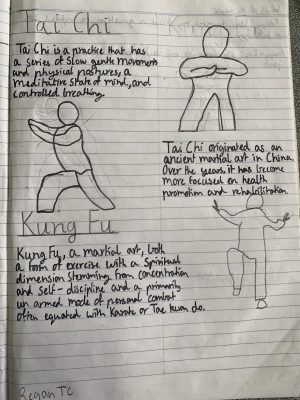 Tai Chi
Tai Chi is a practice that has
a series of slow gentle movements
and physical postures, a
meditative state of mind, and
controlled breathing.
Tai Chi originated as an
ancient martial art in China.
Over the years, it has become
more focused on health
promotion and rehabilitation
Kung Fu
Kung Fu, a martial art, both
a form of exercise with a spiritual
dimension stemming from concentration
and self-discipline and a primarily
un armed mode of personal combat
often equated with Karate or Tae kwon do.
Regan TC